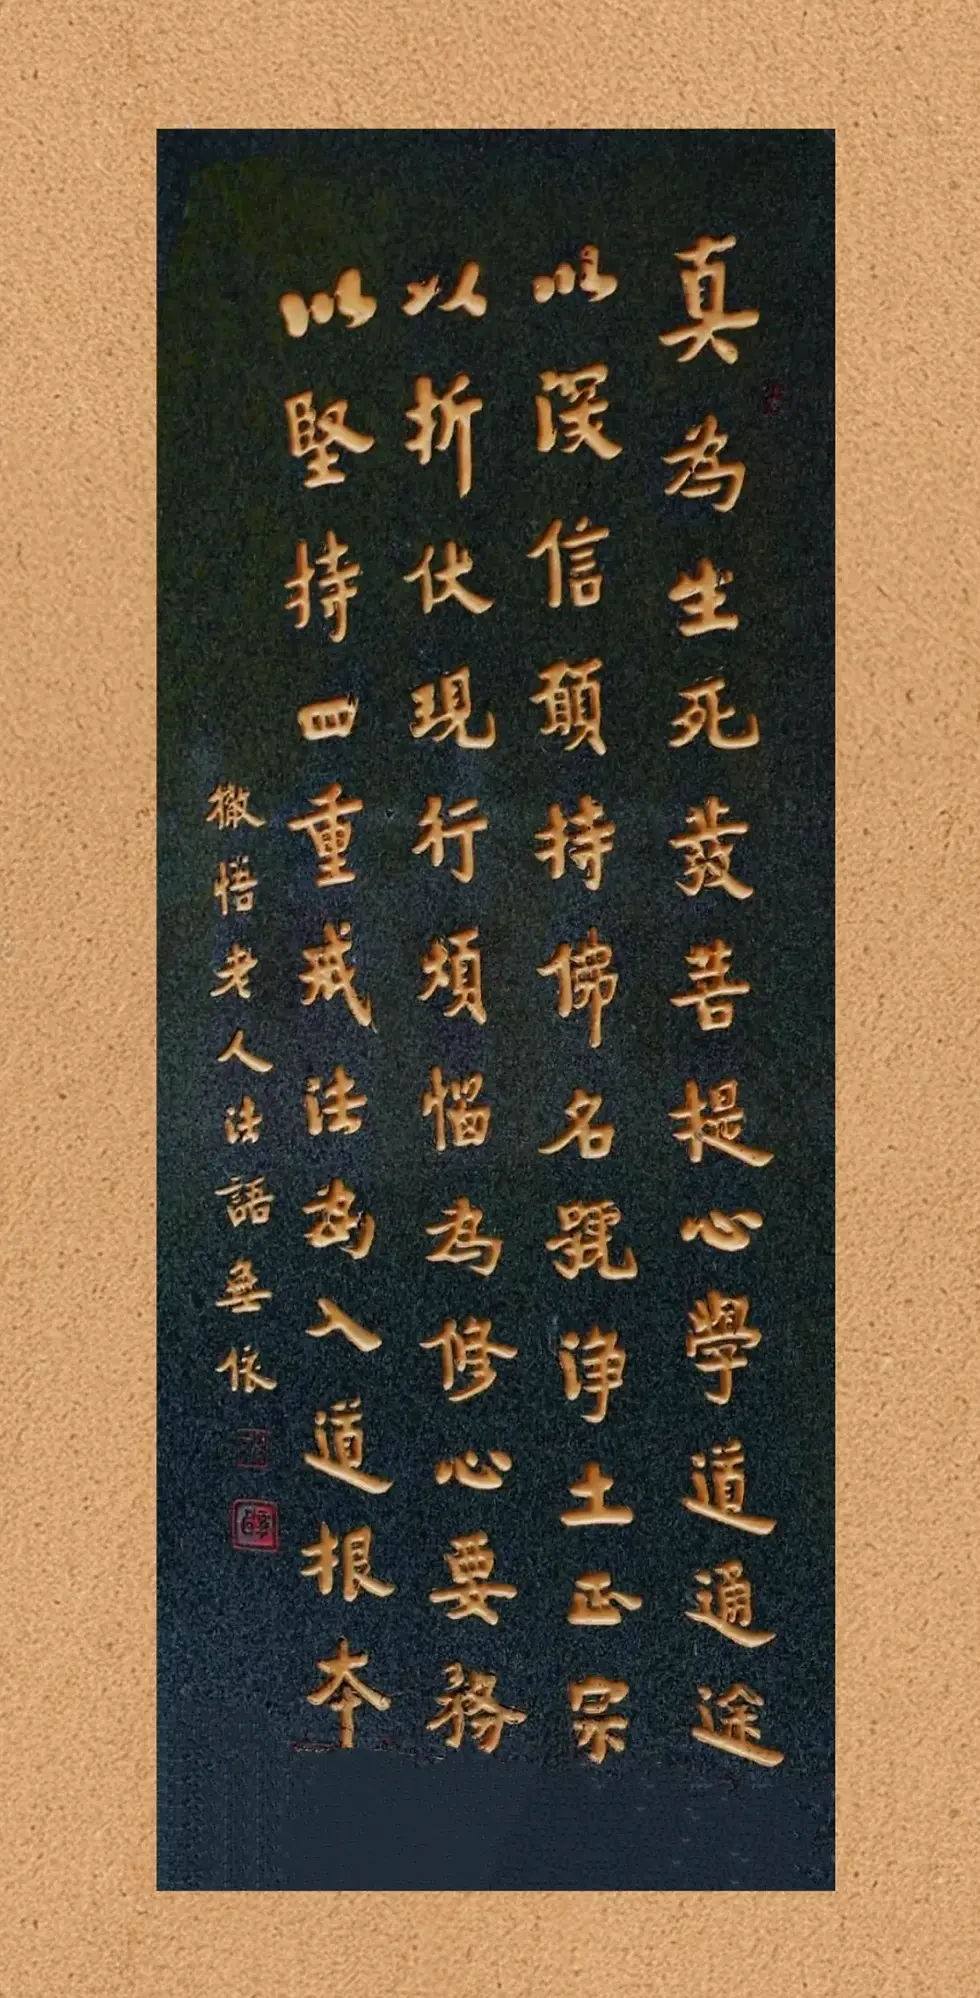 真為生死發菩提心學道通途
以深信願持佛名號淨土正宗
以折伏現行煩惱為修心要務
以堅持四重戒法為入道根本
徹悟老人法語無依